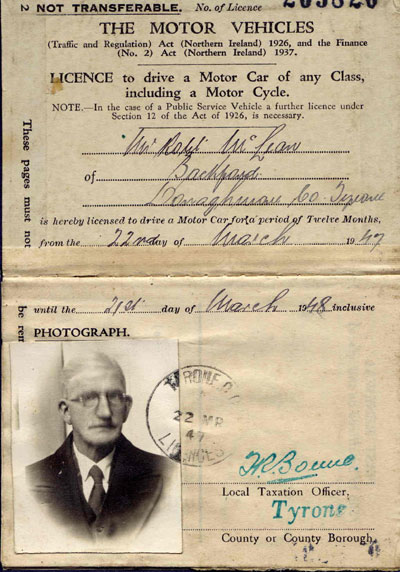 2 NOT TRANSFERABLE. No. of Licence 205820
THE MOTOR VEHICLES
(Traffic and Regulation) Act (Northern Ireland) 1926, and the Finance
(No. 2) Act (Northern Ireland) 1937.
LICENCE to drive a Motor Car of any Class,
including a Motor Cycle.
NOTE.—In the case of a Public Service Vehicle a further licence under
Section 12 of the Act of 1926, is necessary.
Mr Robt McLean
of Backford
Donaghmore Co. Tyrone
is hereby licensed to drive a Motor Car for a period of Twelve Months,
from the 22nd day of March 1947
until the 21st day of March 1948 inclusive
These pages must not
be rem
PHOTOGRAPH.
TYRONE C
22 MR
47
LICENCES
Local Taxation Officer,
Tyrone
County or County Borough.